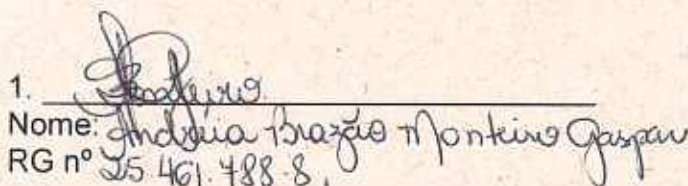 1.
Nome: Andréia Brazão Monteiro Gaspar
RG nº 25.461.788-8